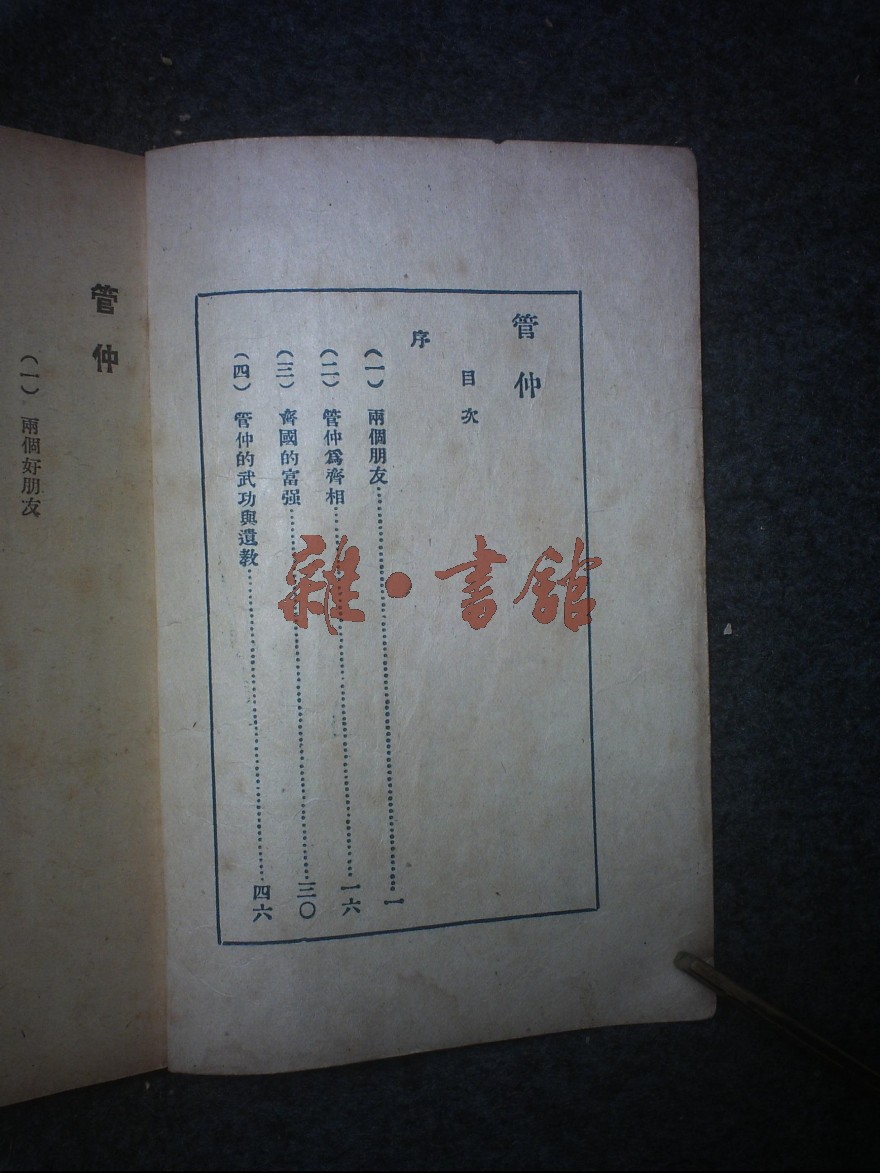 管仲
目次
序
(一) 兩個朋友…………一
(二) 管仲爲齊相…………一六
(三) 齊國的富强…………三〇
(四) 管仲的武功與遺教…………四六
管仲
(一) 兩個好朋友
雜·書館